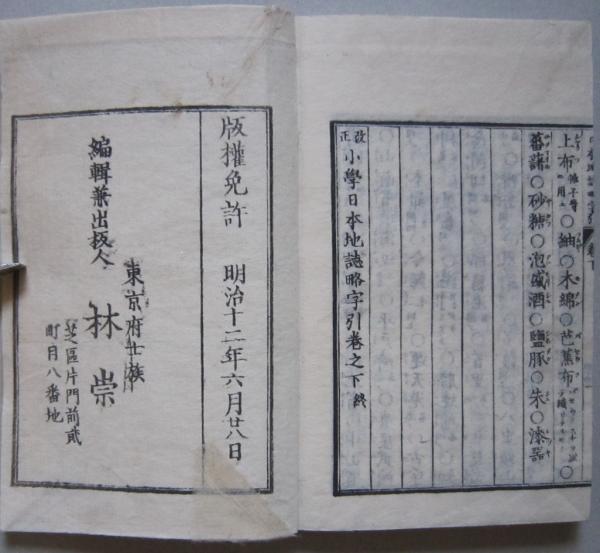 上布○紬○木綿○芭蕉布○
蕃藷○砂糖○泡盛酒○鹽豚○朱○漆器
改正 小學日本地誌略字引卷之下終
版權免許 明治十二年六月廿八日
東京府士族
編輯兼出板人 林 崇
芝區片門前貳
町目八番地